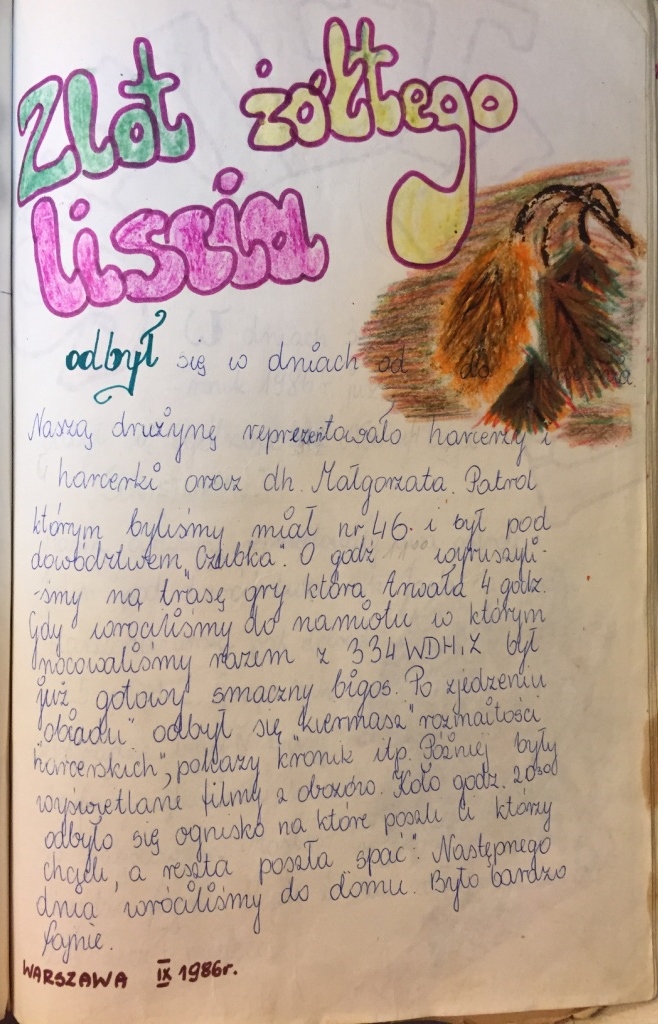 Zlot żółtego
liscia
odbył się w dniach od do
Naszą drużynę reprezentowało harcerzy i
harcerki oraz dh. Małgorzata. Patrol
którym byliśmy miał nr 46. i był pod
dowództwem "Czubka". O godz wyruszyli-
-śmy na trasę gry która trwała 4 godz.
Gdy wróciliśmy do namiotu w którym
nocowaliśmy razem z 334 WDH i Z był
już gotowy smaczny bigos. Po zjedzeniu
"obiadu" odbył się "kiermasz" rozmaitości
harcerskich", pokazy kronik itp. Później były
wyświetlane filmy z obozów. Koło godz. 20³⁰
odbyło się ognisko na które poszli ci którzy
chcieli, a reszta poszła "spać". Następnego
dnia wróciliśmy do domu. Było bardzo
fajnie.
WARSZAWA IX 1986r.